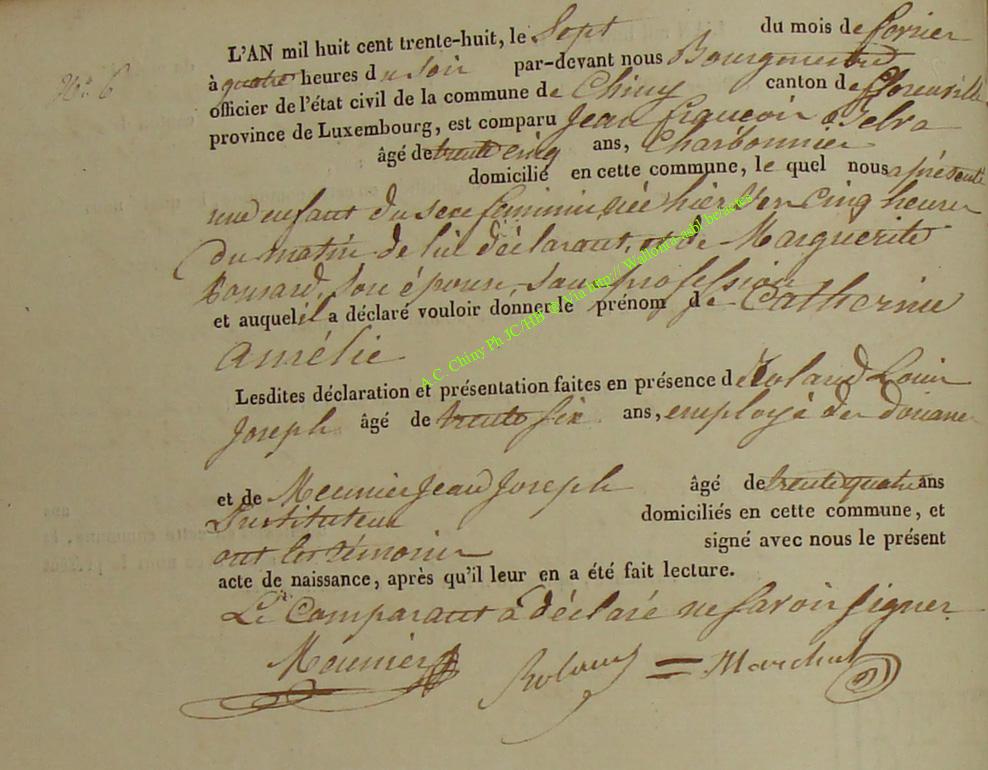 No 6
L'AN mil huit cent trente-huit, le Sept du mois de fevrier
à quatre heures du soir par-devant nous Bourgmestre
officier de l'état civil de la commune de Chiny canton de florenville
province de Luxembourg, est comparu Jean françois
âgé de trente cinq ans, Charbonnier
domicilié en cette commune, le quel nous a présenté
une enfant du sexe feminin, née hier vers cinq heures
du matin de lui déclarant, et de Marguerite
son épouse, sans profession
et auquel il a déclaré vouloir donner le prénom de Catherine
Amélie
Lesdites déclaration et présentation faites en présence de Roland Louis
Joseph âgé de trente six ans, employé des douanes
et de Meunier Jean Joseph âgé de trente quatre ans
Instituteur domiciliés en cette commune, et
ont les témoins signé avec nous le présent
acte de naissance, après qu'il leur en a été fait lecture.
Le Comparant a déclaré ne savoir signer
Meunier Roland = Marchal
A.C. Chiny Ph JC/HB © Via http:// Wallonia-asbl.be/actes